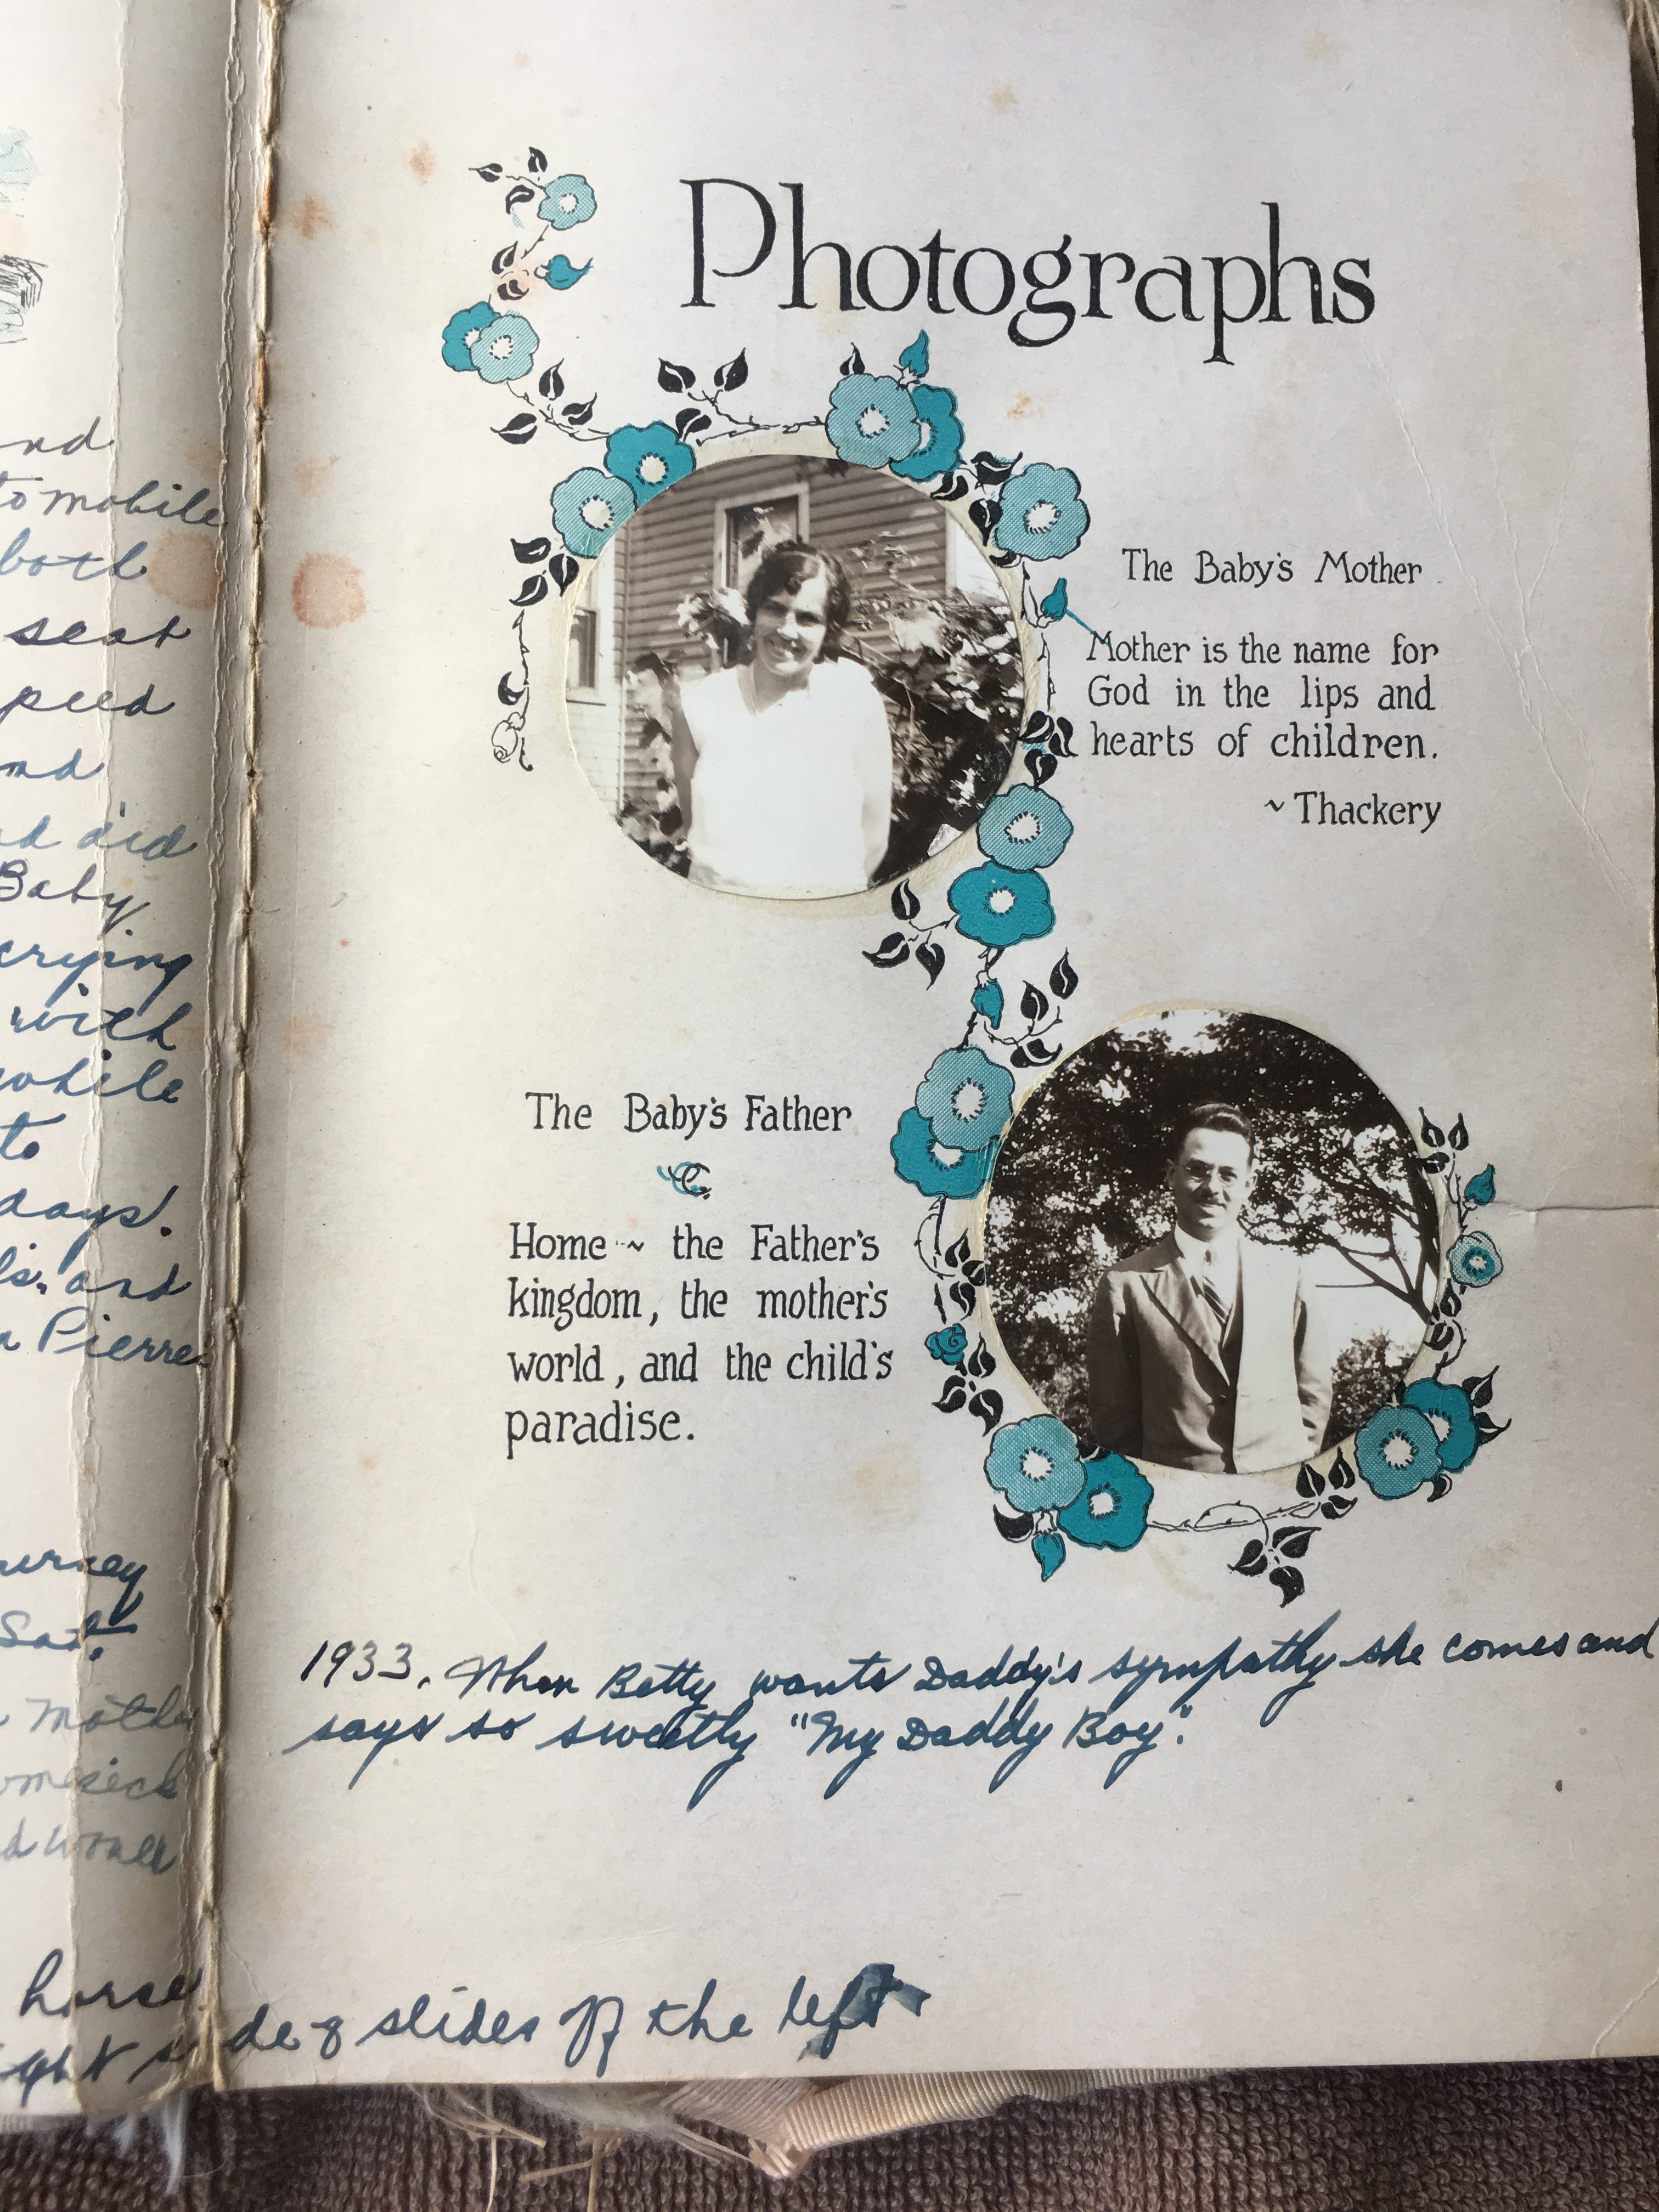 nd
to mobile
both
seat
peed
and
d did
Baby
crying
with
while
to
days.
ls. and
n Pierre
urney
Sat.
Mothe
omesick
d would
horse
ght side & slides off the left
Photographs
The Baby's Mother
Mother is the name for
God in the lips and
hearts of children.
~ Thackery
The Baby's Father
Home ~ the Father's
kingdom, the mother's
world, and the child's
paradise.
1933. When Betty wants Daddy's sympathy she comes and
says so sweetly "My Daddy Boy".